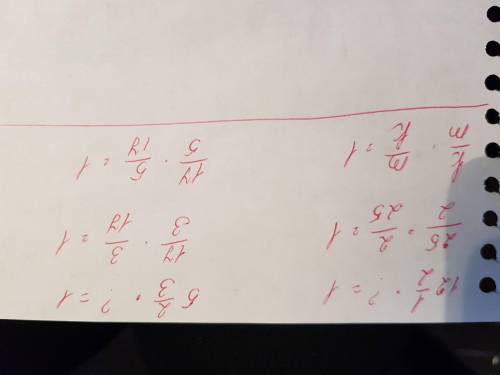 12 1/2 · ? = 1
25/2 · 2/25 = 1
k/m · m/k = 1
5 2/3 · ? = 1
17/3 · 3/17 = 1
17/5 · 5/17 = 1